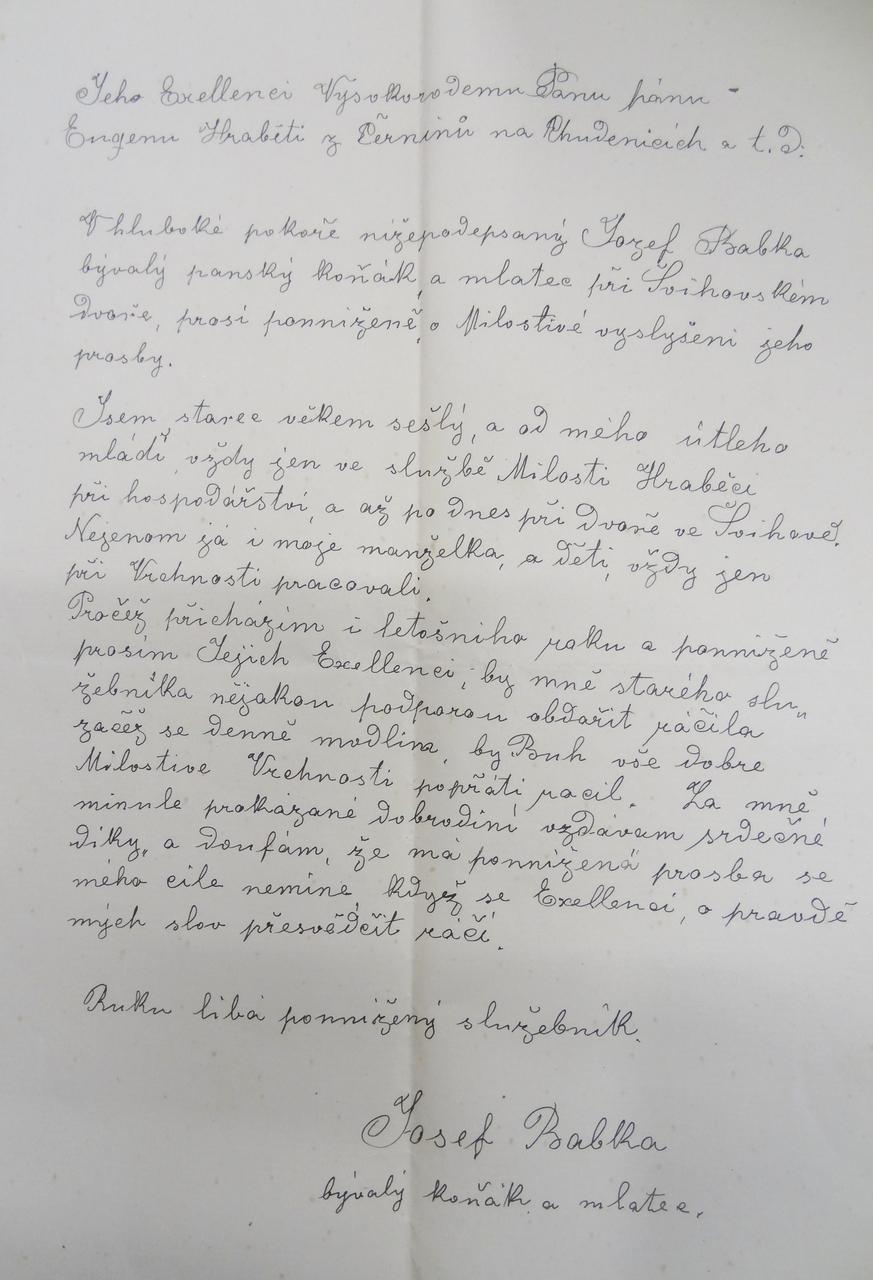 Jeho Exellenci Vysokorodemu Pánu pánu -
Eugenu Hraběti z Černínů na Chudenicích a t. d.
V hluboké pokoře nížepodepsaný Jozef Babka
bývalý panský koňák, a mlatec při Švihovském
dvoře, prosí ponníženě, o Milostivé vyslyšeni jeho
prosby.
Jsem starec věkem sešlý, a od mého útleho
mládí, vždy jen ve službě Milosti Hraběci
při hospodářství, a až po dnes při dvoře ve Švihově.
Nejenom já i moje manželka, a děti, vždy jen
při Vrchnosti pracovali.
Pročěž přicházím i letošniho roku a ponníženě
prosím Jejich Exellenci, by mně starého slu„
žebníka nějakou podporou obdařit ráčila
začěž se denně modlím, by Buh vše dobre
Milostive Vrchnosti popřáti racil. Za mně
minule prokázané dobrodiní vzdávam srdečné
díky„ a doufám, že má ponnížená prosba se
mého cile nemine, když se Exellenci, o pravdě
mých slov přesvědčit ráčí.
Ruku líbá ponnížený služebník.
Josef Babka
bývalý koňák a mlatec.